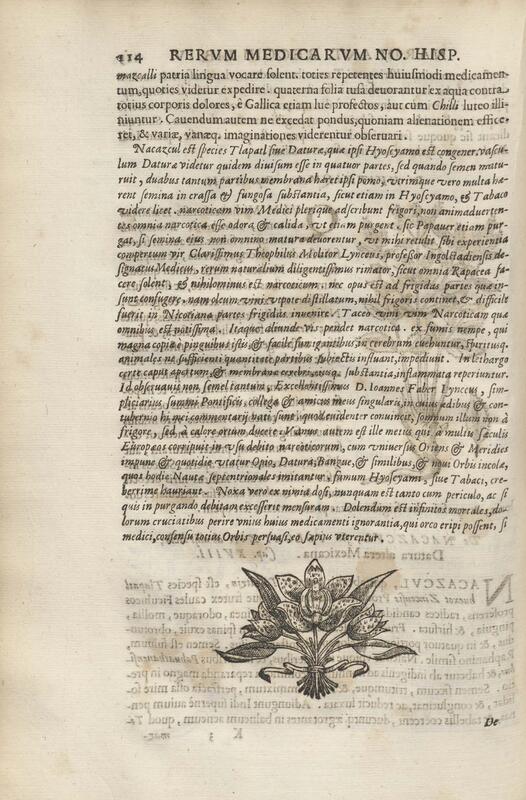 114 RERVM MEDICARVM NO. HISP.
mazcalli patria lingua vocare solent. toties repetentes huiusmodi medicamen-
tum, quoties videtur expedire. quaterna folia tusa devorantur ex aqua contra
totius corporis dolores, è Gallica etiam lue profectos, aut cum Chilli luteo illi-
niuntur. Cauendum autem ne excedat pondus, quoniam alienationem effice-
ret, & variæ, vanæq. imaginationes viderentur obseruari.
Nacazcul est species Tlapatl siue Daturæ, quæ ipsi Hyoscyamo est congener, vascu-
lum Daturæ videtur quidem diuisum esse in quatuor partes, sed quando semen matu-
ruit, duabus tantum partibus membrana hæret ipsi pomo, vtrimque vero multa hæ-
rent semina in crassa & fungosa substantia, sicut etiam in Hyoscyamo, & Tabaco
videre licet. narcoticam vim Medici plerique adscribunt frigori, non animaduerten-
tes omnia narcotica esse odora, & calida, vt etiam purgent. sic Papauer etiam pur-
gat, si semina eius non omnino matura deuorentur, vt mihi retulit sibi experientia
compertum vir Clarissimus Theophilus Molitor Lynceus, professor Ingolstadiensis de-
signatus Medicus, rerum naturalium diligentissimus rimator, sicut omnia Rapacea fa-
cere solent, & nihilominus est narcoticum. nec opus est ad frigidas partes quæ in-
sunt confugere, nam oleum vini vtpote distillatum, nihil frigoris continet, & difficile
fuerit in Nicotiana partes frigidas inuenire. Taceo vini vim Narcoticam quæ
omnibus est notissima. Itaque aliunde vis pendet narcotica. ex fumis nempe, qui
magna copia è pinguibus istis & facile fumigantibus in cerebrum euehuntur, spiritusq.
animales ne sufficienti quantitate partibus subiectis influant, impediunt. In lethargo
certe caput apertum, & membranæ cerebri, eiusq. substantia, inflammata reperiuntur.
Id obseruauit non semel tantum, Excellentissimus D. Ioannes Faber Lynceus, sim-
pliciarius summi Pontificis, collega & amicus meus singularis, in cuius ædibus & con-
tubernio hi mei commentarij nati sunt, quod euidenter conuincit, somnum illum non à
frigore, sed à calore ortum ducere. Vanus autem est ille metus qui à multis sæculis
Europæos corripuit in vsu debito narcoticorum, cum vniuersus Oriens & Meridies
impune & quotidie vtatur Opio, Datura, Bangue, & similibus, & noui Orbis incolæ,
quos hodie Nautæ septentrionales imitantur, fumum Hyoscyami, siue Tabaci, cre-
berrime hauriant. Noxa vero ex nimia dosi, nunquam est tanto cum periculo, ac si
quis in purgando debitam excesserit mensuram. Dolendum est infinitos mortales, do-
lorum cruciatibus perire vnius huius medicamenti ignorantia, qui orco eripi possent, si
medici, consensu totius Orbis persuasi, eo sæpius vterentur.
De